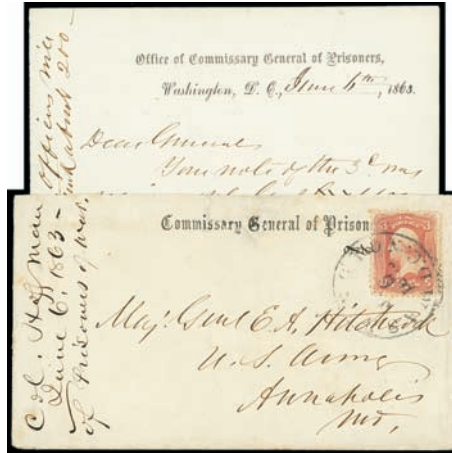 Office of Commissary General of Prisoners,
Washington, D. C., June 4th, 1863.
Dear General
Your note of the 3d was
Officers mie
about 200-
Commissary General of Prison
Maj. Genl E. A. Hitchcock
U. S. Army
Annapolis
Md.
Col. Hoffman
June 6. 1863-
of Prisoners of War.